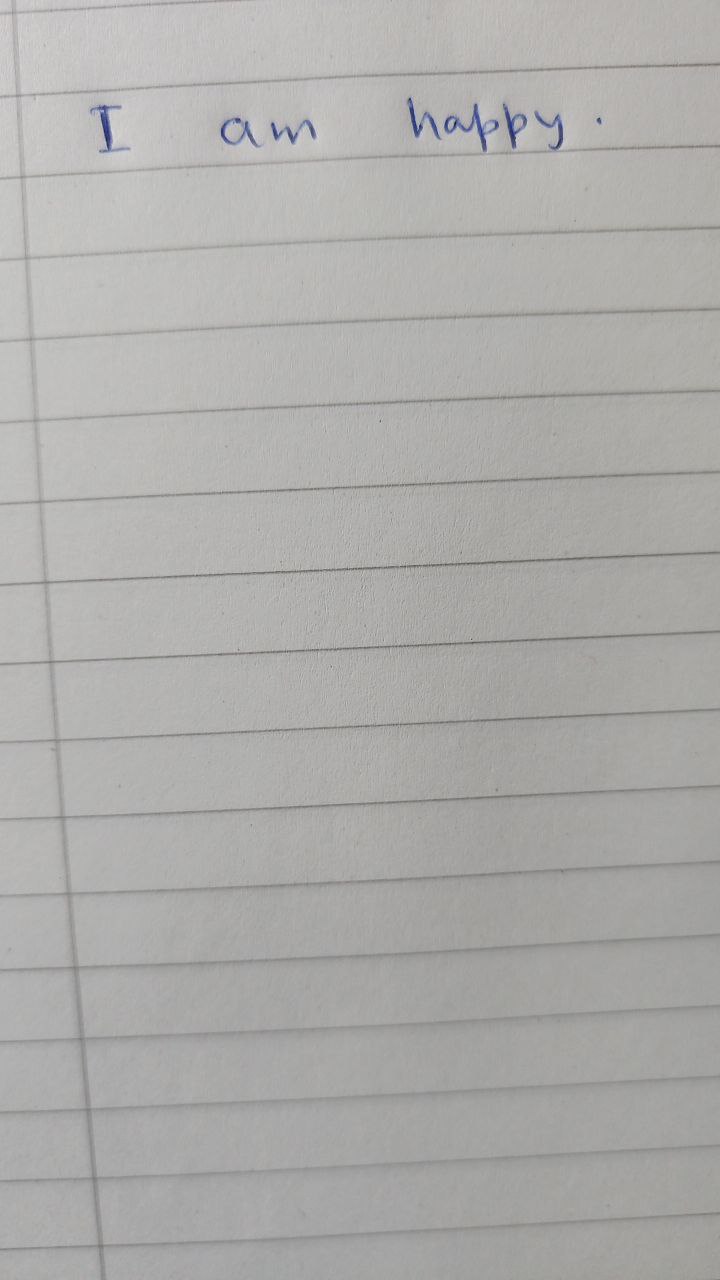 I am happy.